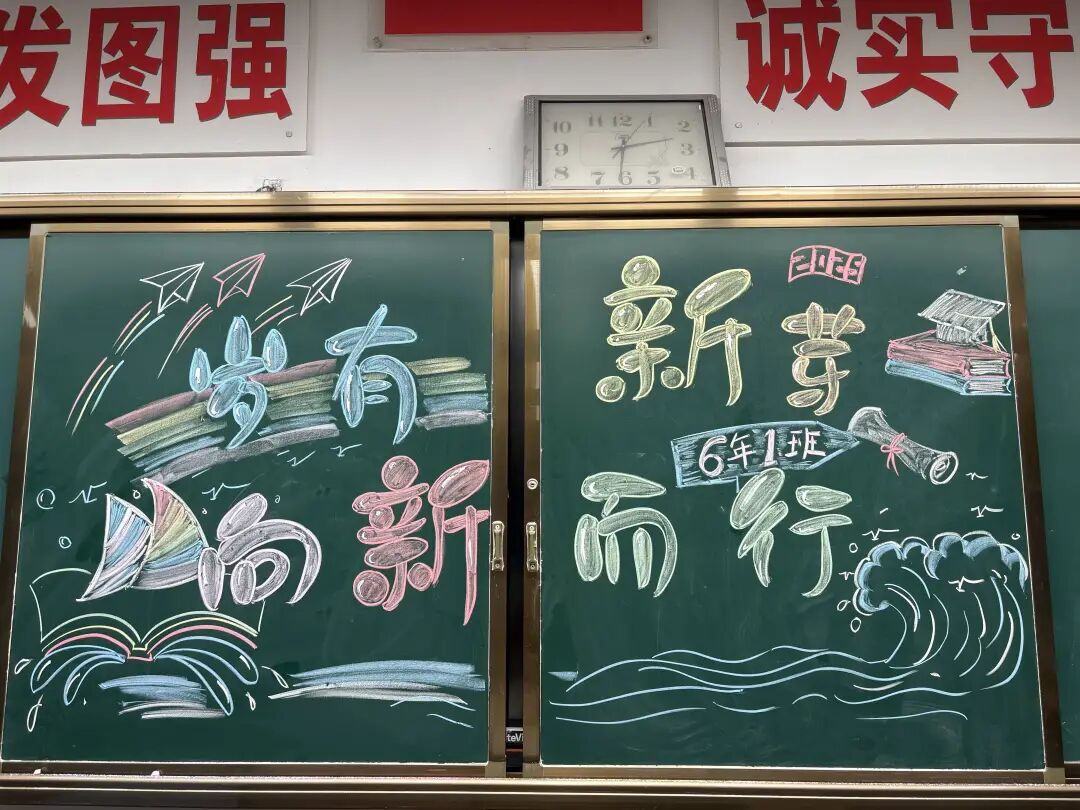 发图强
诚实守
11 12 1
10 2
9 3
8 7 6 5 4
2025
岁有新芽
6年1班
向新而行